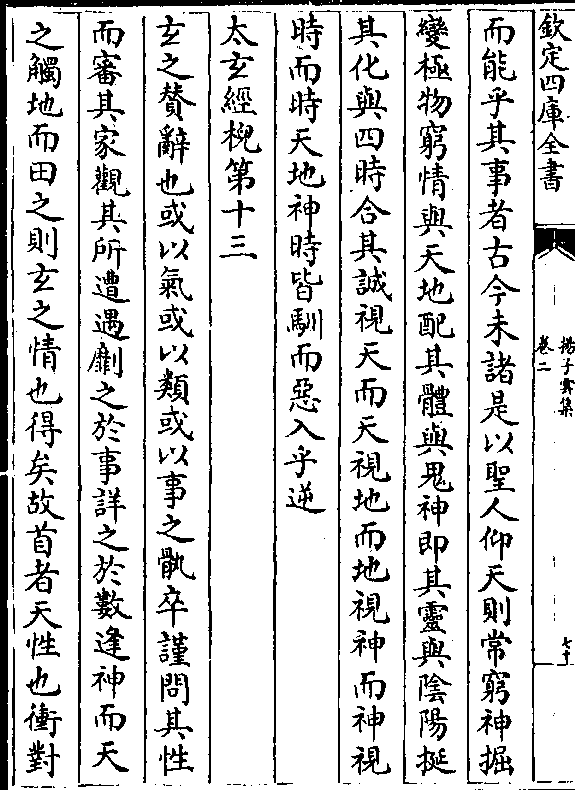 欽定四庫全書
揚子雲集
卷二
七十
而能乎其事者古今未諸是以聖人仰天則常窮神掘
變極物窮情與天地配其體與鬼神即其靈與陰陽挻
其化與四時合其誠視天而天視地而地視神而神視
時而時天地神時皆馴而惡入乎逆
太玄經棿第十三
玄之贊辭也或以氣或以類或以事之骩卒謹問其性
而審其家觀其所遭遇劘之於事詳之於數逢神而天
之觸地而田之則玄之情也得矣故首者天性也衝對